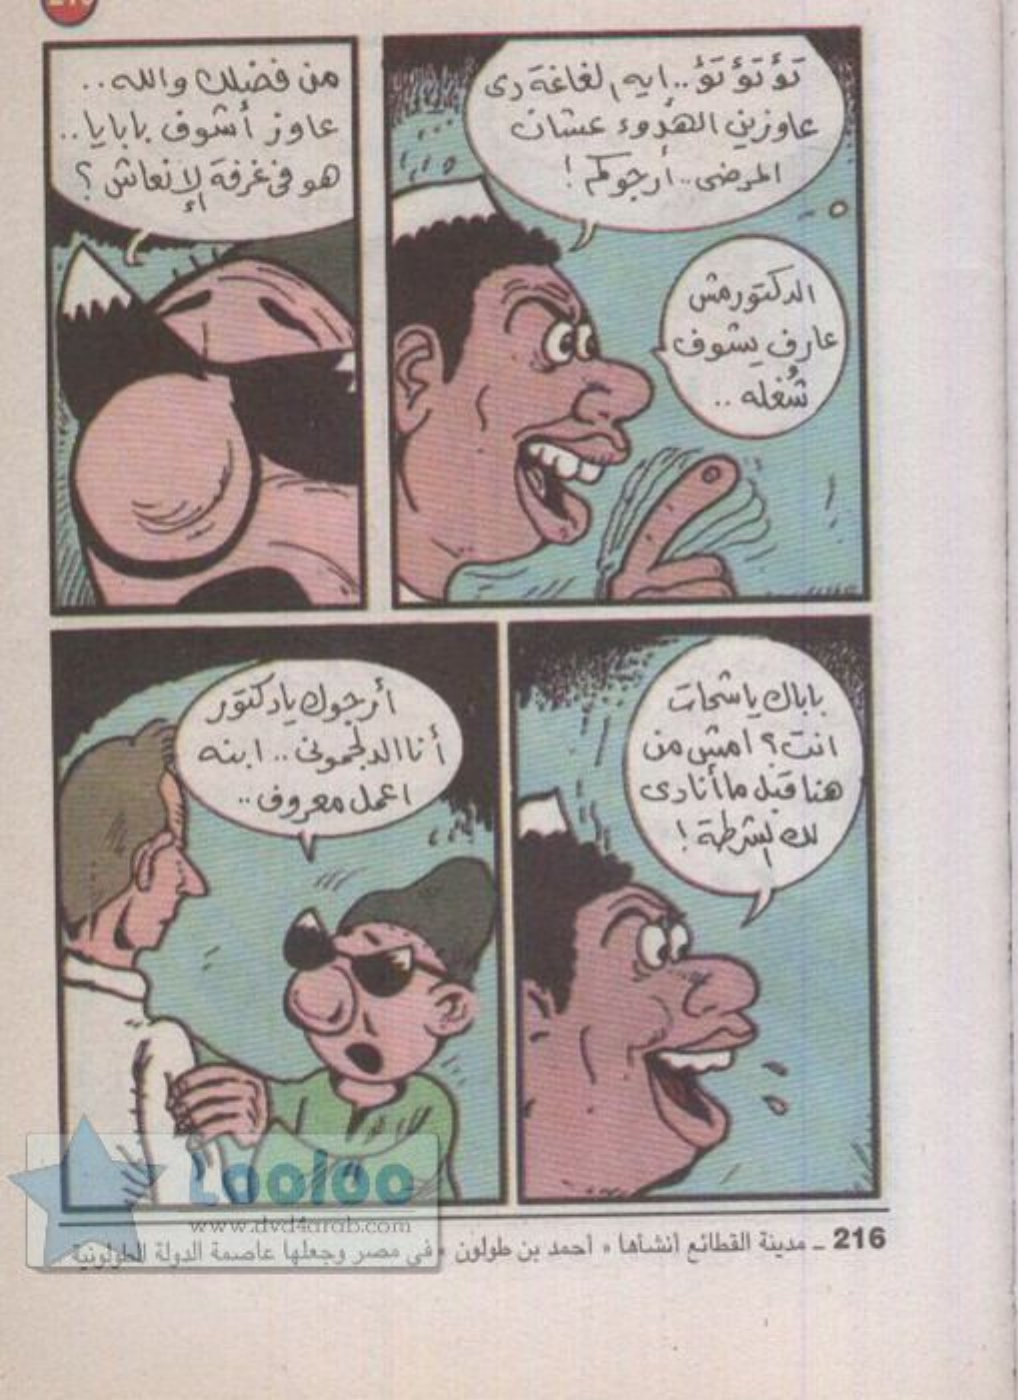 تؤ تؤ تؤ.. ايه الغاغة دى
عاوزين الهدوء عشان
المرضى.. أرجوكم!
الدكتور مش
عارف يشوف
شُغله ..
من فضلك والله..
عاوز أشوف بابايا..
هو فى غرفة الإنعاش؟
باباك يا شحات
انت؟ امشى من
هنا قبل ما أنادى
لك الشرطة!
أرجوك يا دكتور
أنا الدلجمونى.. ابنه
اعمل معروف..
216 ـ مدينة القطائع أنشأها « أحمد بن طولون » فى مصر وجعلها عاصمة الدولة الطولونية
Looloo
www.dvd4arab.com